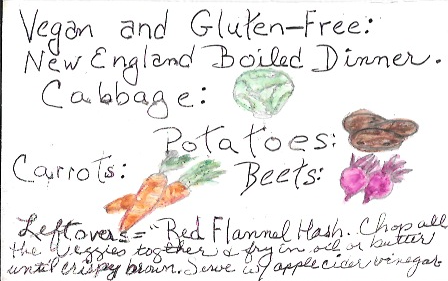 Vegan and Gluten-Free:
New England Boiled Dinner.
Cabbage:
Potatoes:
Carrots: Beets:
Leftovers = "Red Flannel Hash. Chop all
the veggies together & fry in oil or butter
until crispy brown. Serve w/ apple cider vinegar.